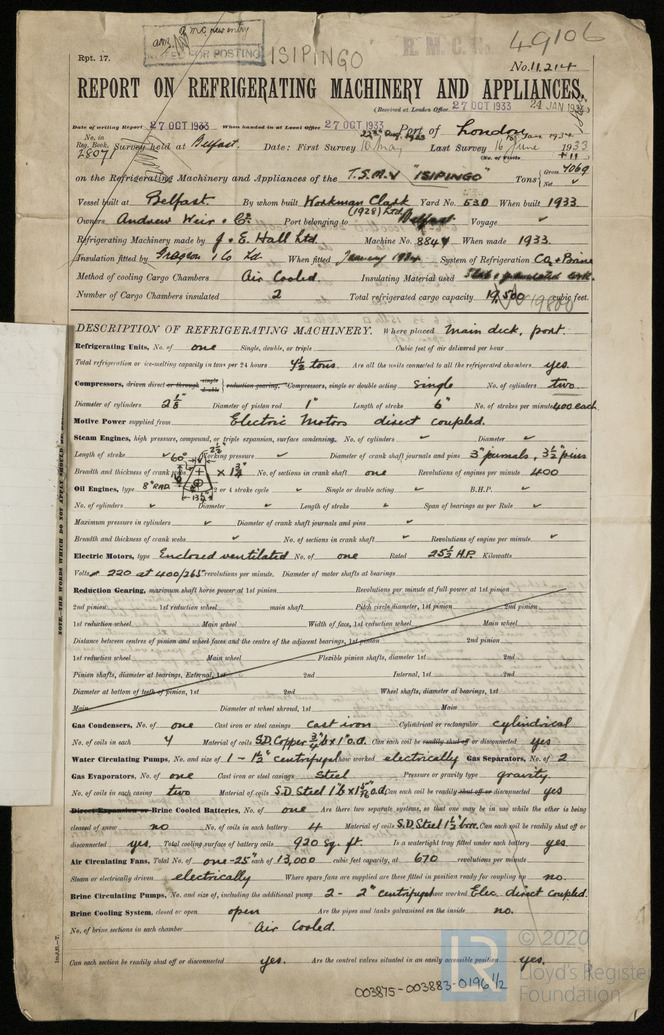 a m c new entry
Rpt. 17.
FOR POSTING
ISIPINGO
R.M.C.
49106
No. 11,214
REPORT ON REFRIGERATING MACHINERY AND APPLIANCES.
(Received at London Office 27 OCT 1933 24 JAN 1934
Date of writing Report 27 OCT 1933 When handed in at Local Office 27 OCT 1933 Port of London
No. in Reg. Book. 2807 Survey held at Belfast. Date: First Survey 10 May Last Survey 16 June 1933
(No. of Visits 11)
on the Refrigerating Machinery and Appliances of the T.S.M.V "ISIPINGO" Tons Gross 7069 Net
Vessel built at Belfast By whom built Workman Clark (1928) Ltd Yard No. 530 When built 1933.
Owners Andrew Weir & Co. Port belonging to Belfast Voyage
Refrigerating Machinery made by J & E. Hall Ltd. Machine No. 8844 When made 1933.
Insulation fitted by Gregson & Co Ld. When fitted January 1934 System of Refrigeration CO2 & Brine
Method of cooling Cargo Chambers Air Cooled. Insulating Material used Slab & granulated cork.
Number of Cargo Chambers insulated 2 Total refrigerated cargo capacity 19,500 19800 cubic feet.
DESCRIPTION OF REFRIGERATING MACHINERY. Where placed Main deck, port.
Refrigerating Units, No. of one Single, double, or triple Cubic feet of air delivered per hour
Total refrigeration or ice-melting capacity in tons per 24 hours 4½ tons. Are all the units connected to all the refrigerated chambers yes.
Compressors, driven direct or through single double reduction gearing. Compressors, single or double acting Single No. of cylinders two
Diameter of cylinders 2⅛" Diameter of piston rod 1" Length of stroke 6" No. of strokes per minute 400 each.
Motive Power supplied from Electric Motors direct coupled.
Steam Engines, high pressure, compound, or triple expansion, surface condensing. No. of cylinders Diameter
Length of stroke 60° 2½" Working pressure Diameter of crank shaft journals and pins 3" journals, 3½" pins
Breadth and thickness of crank × 1¾" No. of sections in crank shaft one Revolutions of engines per minute 400
Oil Engines, type 8" RAD. 2 or 4 stroke cycle Single or double acting B.H.P.
No. of cylinders Diameter Length of stroke Span of bearings as per Rule
Maximum pressure in cylinders Diameter of crank shaft journals and pins
Breadth and thickness of crank webs No. of sections in crank shaft Revolutions of engine per minute.
Electric Motors, type Enclosed ventilated No. of one Rated 25½ H.P. Kilowatts
Volts 220 at 400/265 revolutions per minute. Diameter of motor shafts at bearings
Reduction Gearing, maximum shaft horse power at 1st pinion Revolutions per minute at full power at 1st pinion
2nd pinion 1st reduction wheel main shaft Pitch circle diameter, 1st pinion 2nd pinion
1st reduction wheel Main wheel Width of face, 1st reduction wheel Main wheel
Distance between centres of pinion and wheel faces and the centre of the adjacent bearings, 1st pinion 2nd pinion
1st reduction wheel Main wheel Flexible pinion shafts, diameter 1st 2nd
Pinion shafts, diameter at bearings, External, 1st 2nd Internal, 1st 2nd
Diameter at bottom of teeth of pinion, 1st 2nd Wheel shafts, diameter at bearings, 1st
Main Diameter at wheel shroud, 1st Main
Gas Condensers, No. of one Cast iron or steel casings Cast iron Cylindrical or rectangular cylindrical
No. of coils in each 4 Material of coils S.D. Copper ¾" b x 1" o.d. Can each coil be readily shut off or disconnected yes
Water Circulating Pumps, No. and size of 1 - 1½" centrifugal how worked electrically Gas Separators, No. of 2
Gas Evaporators, No. of one Cast iron or steel casings steel Pressure or gravity type gravity
No. of coils in each casing two Material of coils S.D. Steel Can each coil be readily shut off or disconnected yes
Direct Expansion or Brine Cooled Batteries, No. of one Are there two separate systems, so that one may be in use while the other is being
cleared of snow no No. of coils in each battery 4 Material of coils S.D. Steel 1½" bore Can each coil be readily shut off or
disconnected yes. Total cooling surface of battery coils 920 sq. ft. Is a watertight tray fitted under each battery yes.
Air Circulating Fans, Total No. of one-25" each of 13,000 cubic feet capacity, at 670 revolutions per minute
Steam or electrically driven electrically Where spare fans are supplied are these fitted in position ready for coupling up no.
Brine Circulating Pumps, No. and size of, including the additional pump 2 - 2" centrifugal how worked Elec. direct coupled.
Brine Cooling System, closed or open open Are the pipes and tanks galvanised on the inside no.
No. of brine sections in each chamber Air Cooled.
Can each section be readily shut off or disconnected yes. Are the control valves situated in an easily accessible position yes.
NOTE.—THE WORDS WHICH DO NOT APPLY SHOULD BE
© 2020
Lloyd's Register
Foundation
003875-003883-0196 1/2